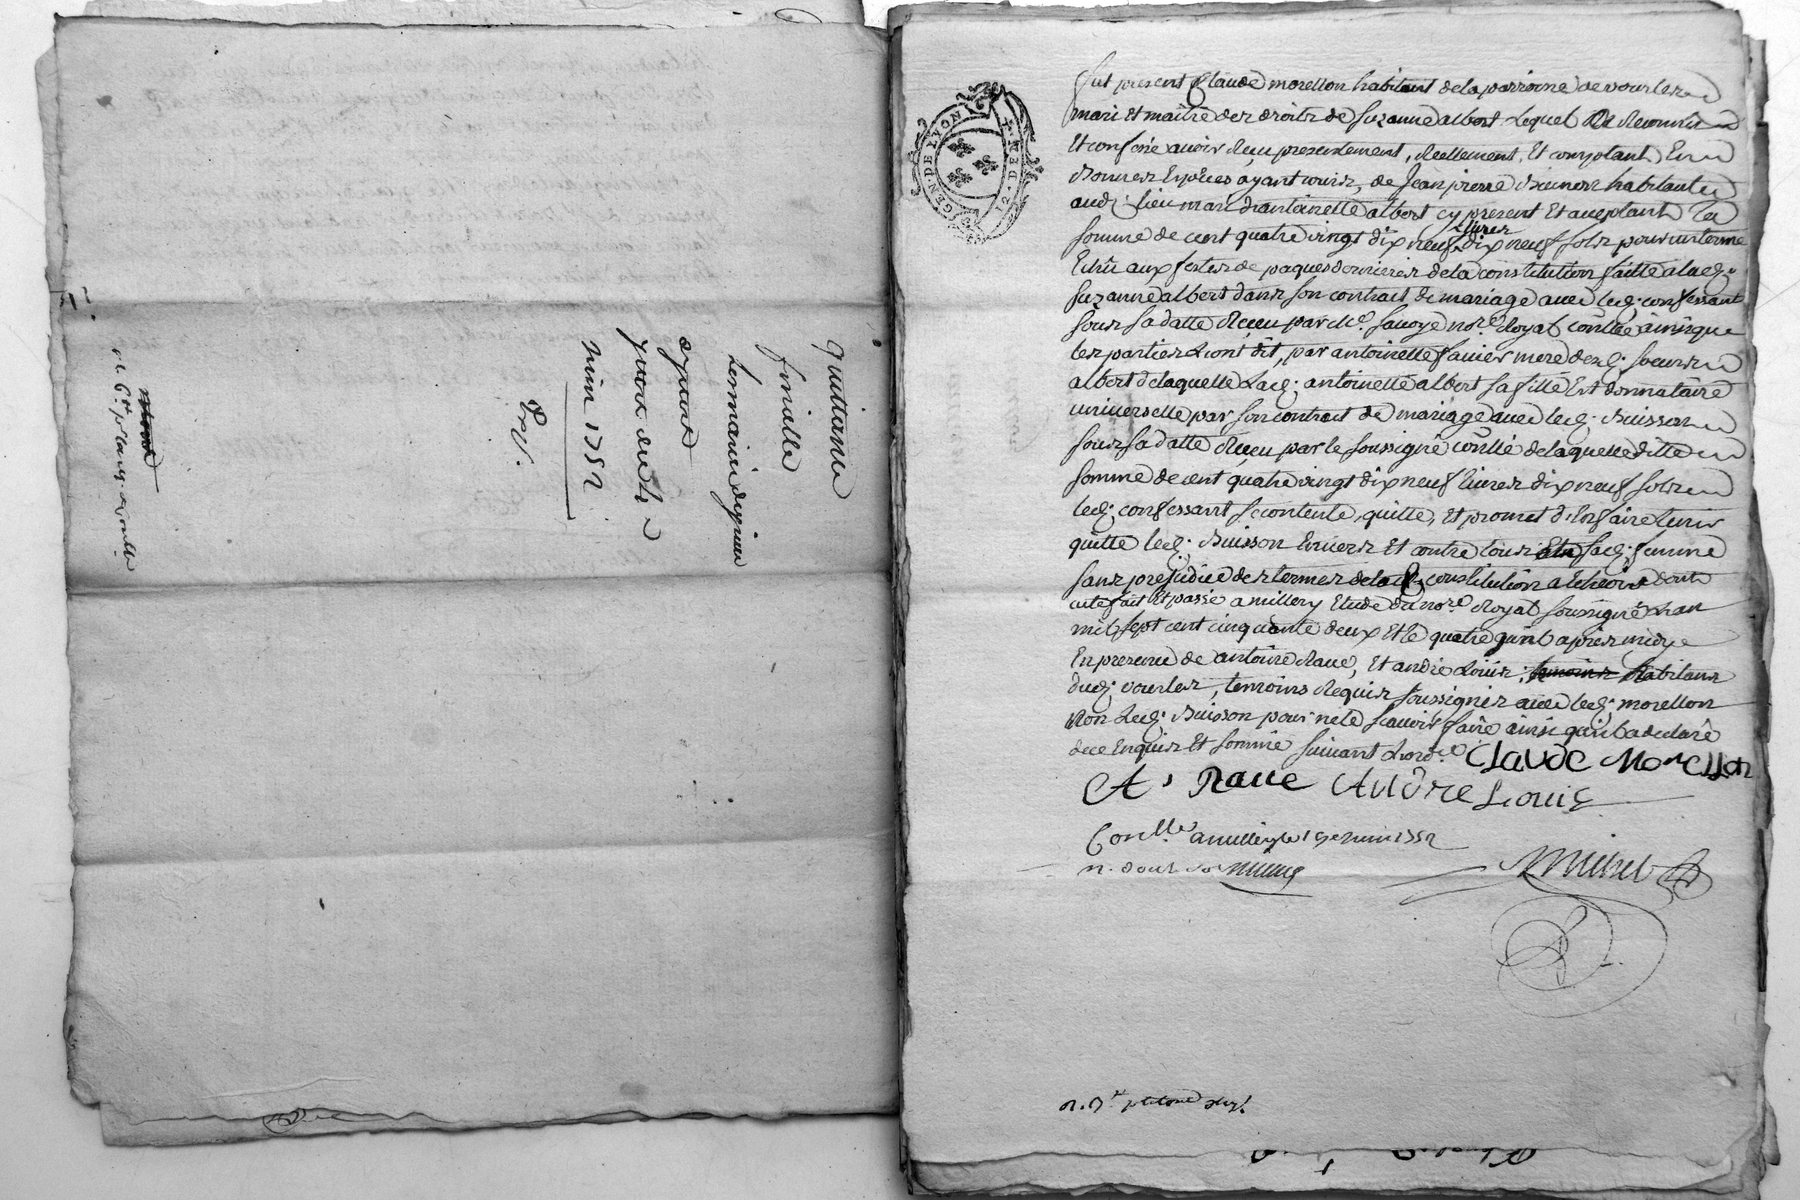 quittance
finalle
juin 1752
GEN. DE LYON
12. DEN. IER
fut present Claude morellon habitant de la parroisse de vourles
mari et maitre des droits de suzanne albert lequel a reconnu
et confessé avoir recu presentement, reellement, et comptant en
bonnes especes ayant cours, de Jean pierre buisson habitant
aud. lieu mari d'antoinette albert cy present et acceptant la
somme de cent quatre vingt dix neuf livres dix neuf sols pour un terme
echû aux festes de paques dernieres de la constitution faitte a lad.
suzanne albert dans son contract de mariage avec led. confessant
sous sa datte recu par Me. savoye nore. royal conllé ainsi que
les parties l'ont dit, par antoinette favier mere desd. soeurs
albert de laquelle lad. antoinette albert sa fille est donnataire
universelle par son contract de mariage avec led. buisson
sous sa datte recu par le soussigné conllé de laquelle ditte
somme de cent quatre vingt dix neuf livres dix neuf sols
led. confessant se contente, quitte, et promet d'en faire tenir
quitte led. buisson envers et contre tous sad. femme
sans prejudice des termes de la constitution a echeoir dont
acte fait et passé a millery etude du nore. royal soussigné l'an
mil sept cent cinquante deux et le quatre juin apres midy
en presence de antoine rave, et andré Louis, temoins habitans
dud. vourles, temoins requis soussignés avec led. morellon
non led. buisson pour ne le scavoir faire ainsi qu'il a declaré
de ce enquis et sommé suivant l'ordce.
Claude Morellon
A. Rave Andre Louis
Conllé a millery le juin 1752